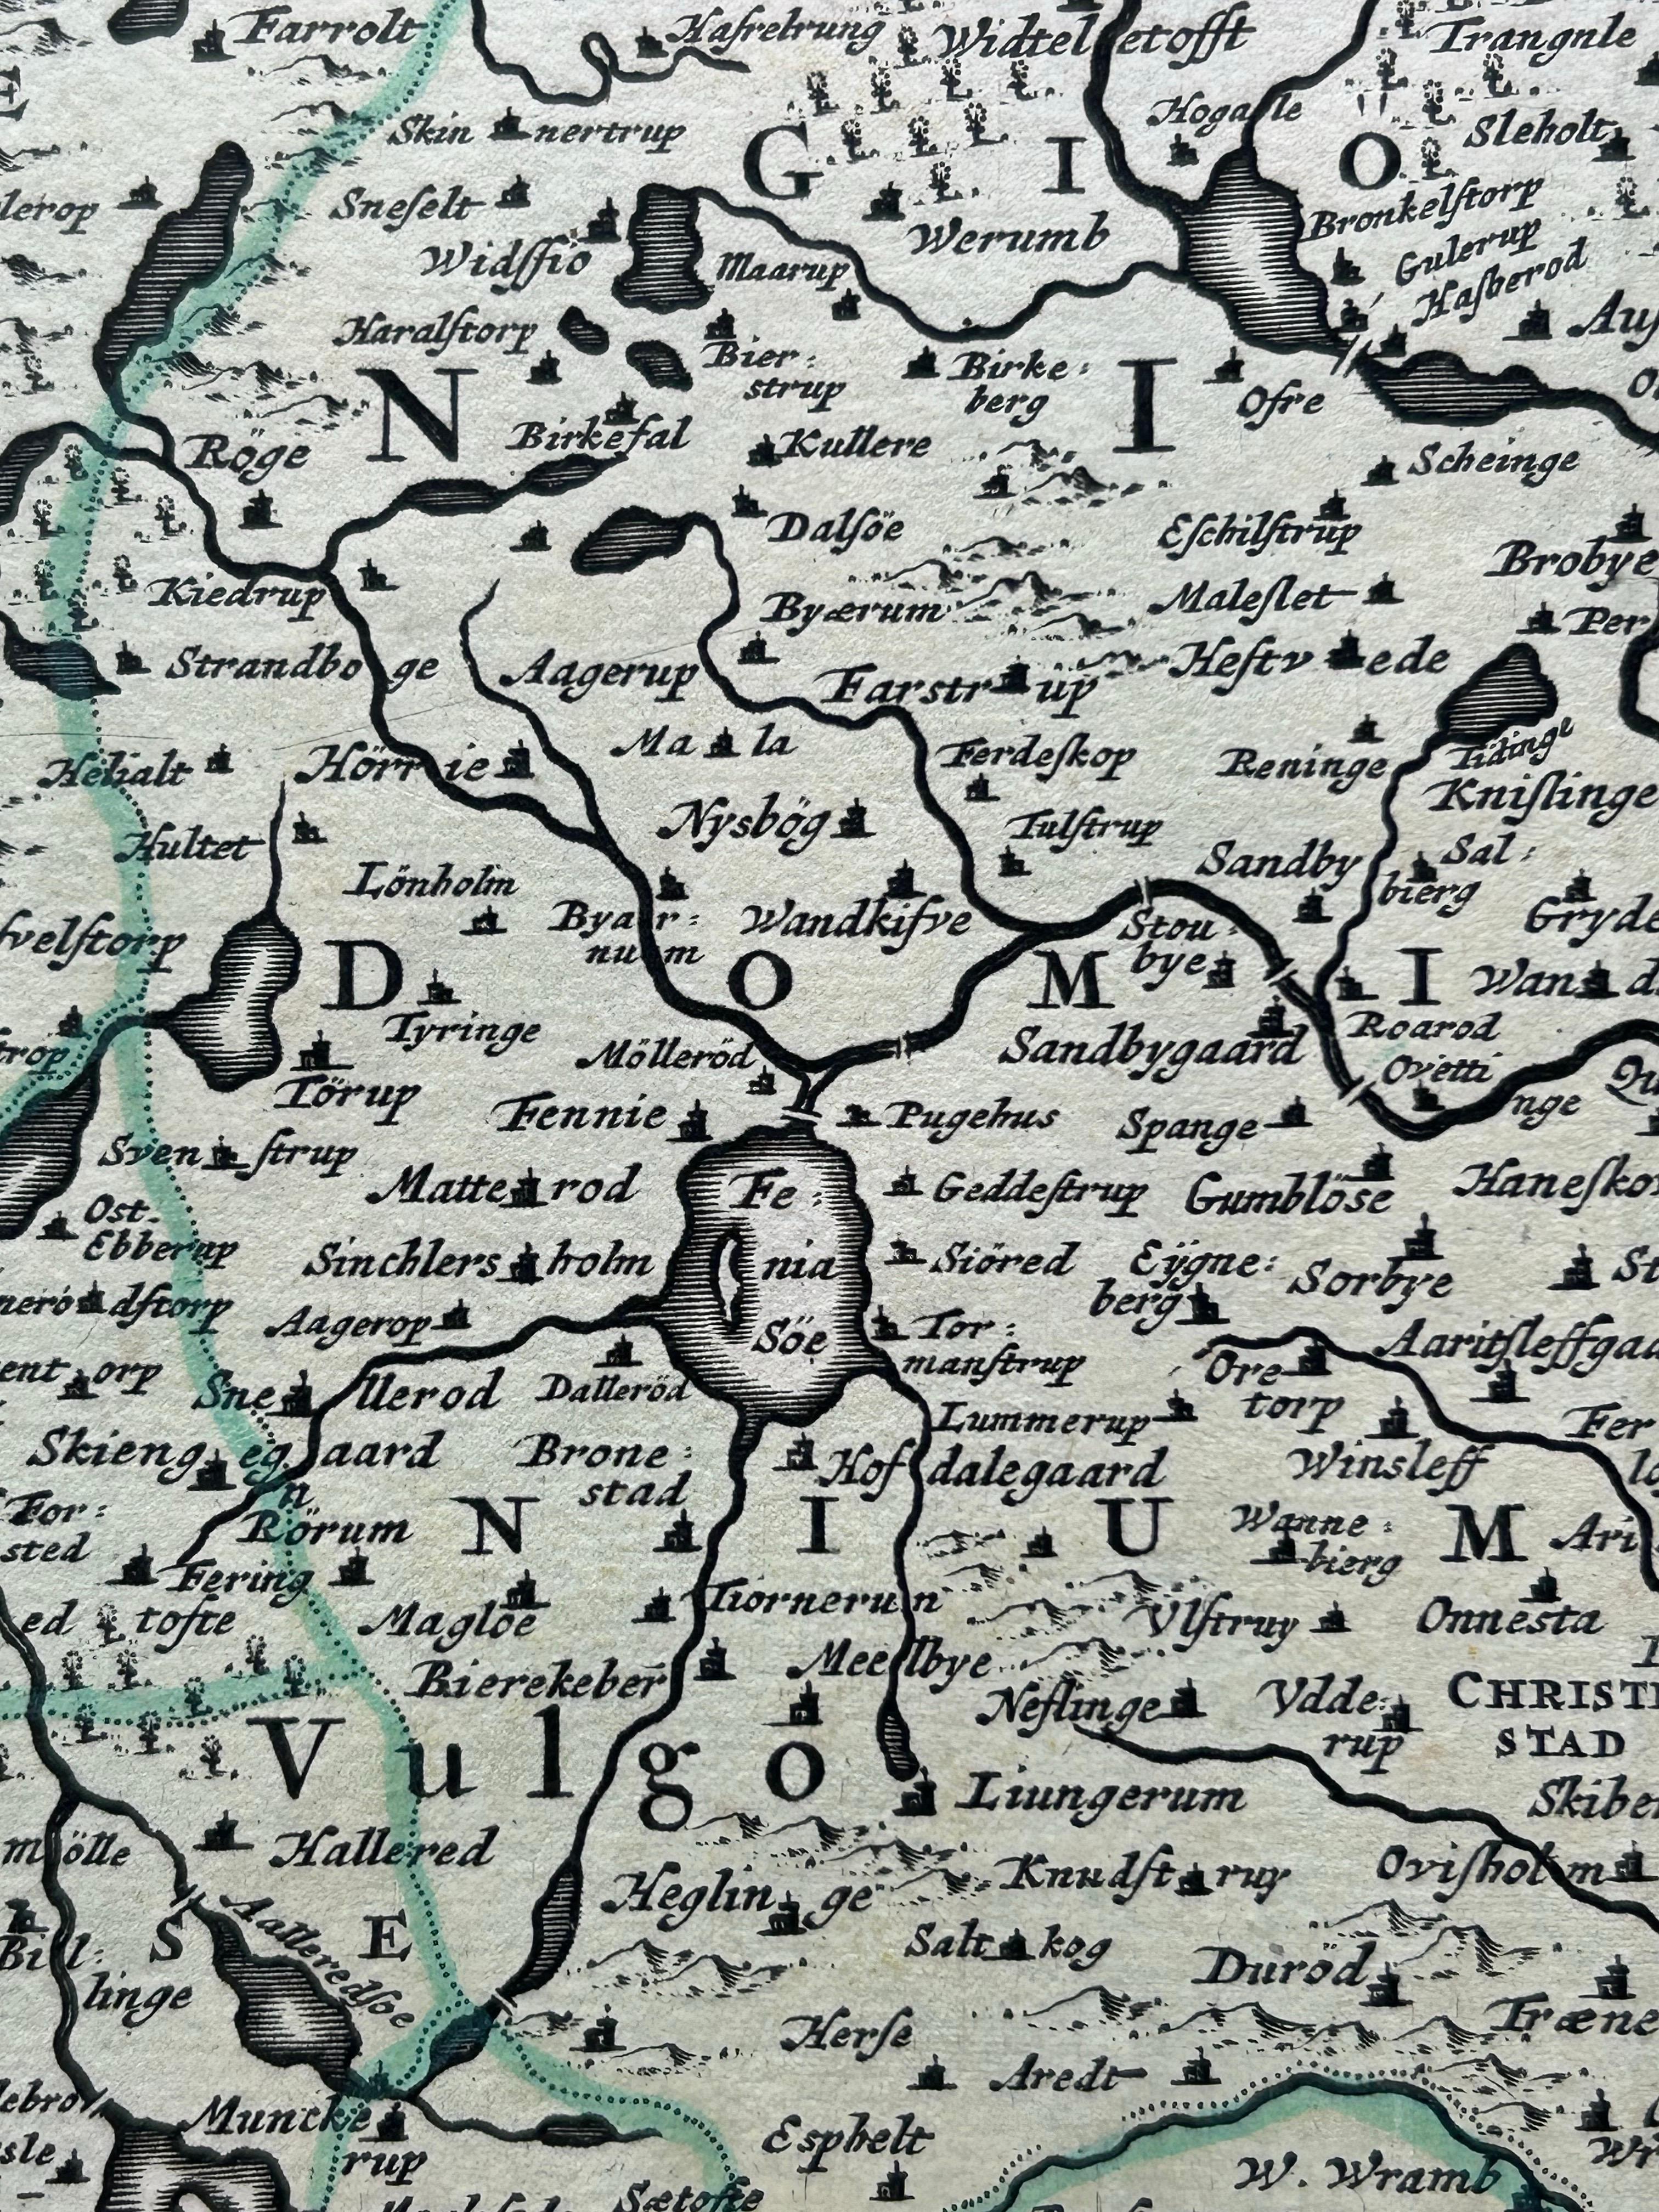 Farrolt
Hasrelrung
Widtelsetofft
Trangnle
Skinnertrup
Hogasle
Sleholt
G I O
lerop
Sneſelt
Werumb
Bronkelſtorp
Gulerup
Haſberod
Widſſiö
Maarup
Haralſtorp
Bier:
strup
Birke:
berg
Ofre
Auſ
N I
Röge
Birkefal
Kullere
Scheinge
Dalſöe
Eſchilſtrup
Brobye
Kiedrup
Byærum
Maleſlet
Per
Strandboge
Aagerup
Farstrup
Heſtvede
Helialt
Hörrie
Maala
Ferdeſkop
Reninge
Tidinge
Kniſlinge
Nysbög
Tulſtrup
Hultet
Sandby
Sal:
bierg
Lönholm
Byaar:
num
Wandkiſve
Stou:
bye
Gryde
ſvelſtorp
D O M I
Wand
Tyringe
Roarod
trop
Mölleröd
Sandbygaard
Ovetti
nge
Qu
Törup
Fennie
Pugehus
Spange
Svenſtrup
Matterod
Fe:
nia
Söe
Geddeſtrup
Gumblöse
Haneſko
Ost.
Ebberup
Sinchlersholm
Siöred
Eÿgne:
berg
Sorbye
St
nerödſtorp
Aagerop
Tor:
manſtrup
Aaritſleffgaa
entorp
Snellerod
Dalleröd
Ore
torp
Lummerup
Fer
Skiengegaard
Brone:
stad
Hofdalegaard
Winsleff
lo
For:
sted
Rörum
N I U M
Wanne:
bierg
Ari
Fering
Tiornerum
edtofte
Magloe
Vlſtruy
Onnesta
Bierekeber
Meelbye
Neſlinge
Ydde:
rup
CHRISTI
STAD
Vulgo
Liungerum
Skibe
mölle
Hallered
Heglinge
Knudſtruy
Oviſholm
Bil:
linge
S E
Aalleredſoe
Saltkog
Duröd
Træne
Herſe
Aredt
lebro
Muncke
rup
Esphelt
sle
W. Wramb
Wr
Sætofte